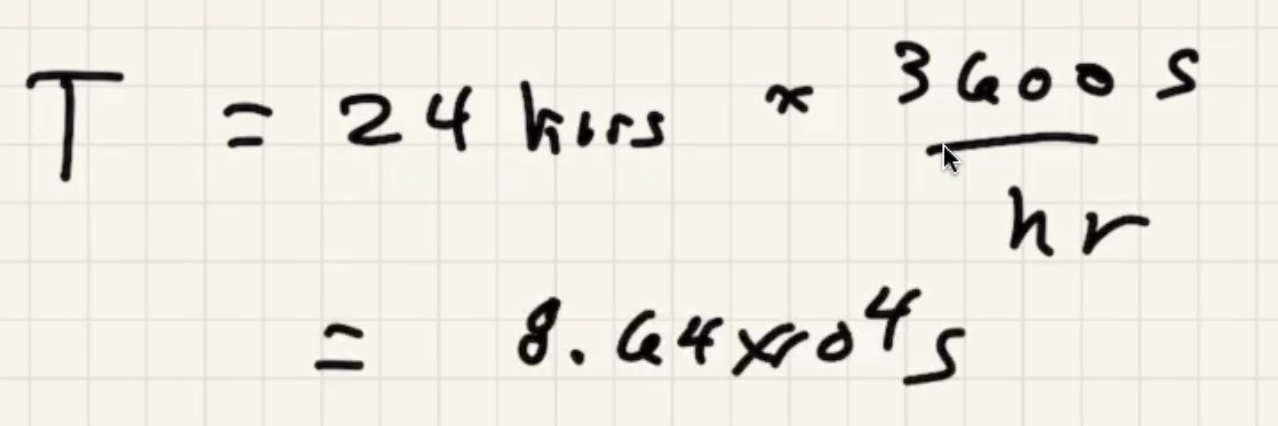 T = 24 hurs * 3600 s / hr
= 8.64x10^4 s